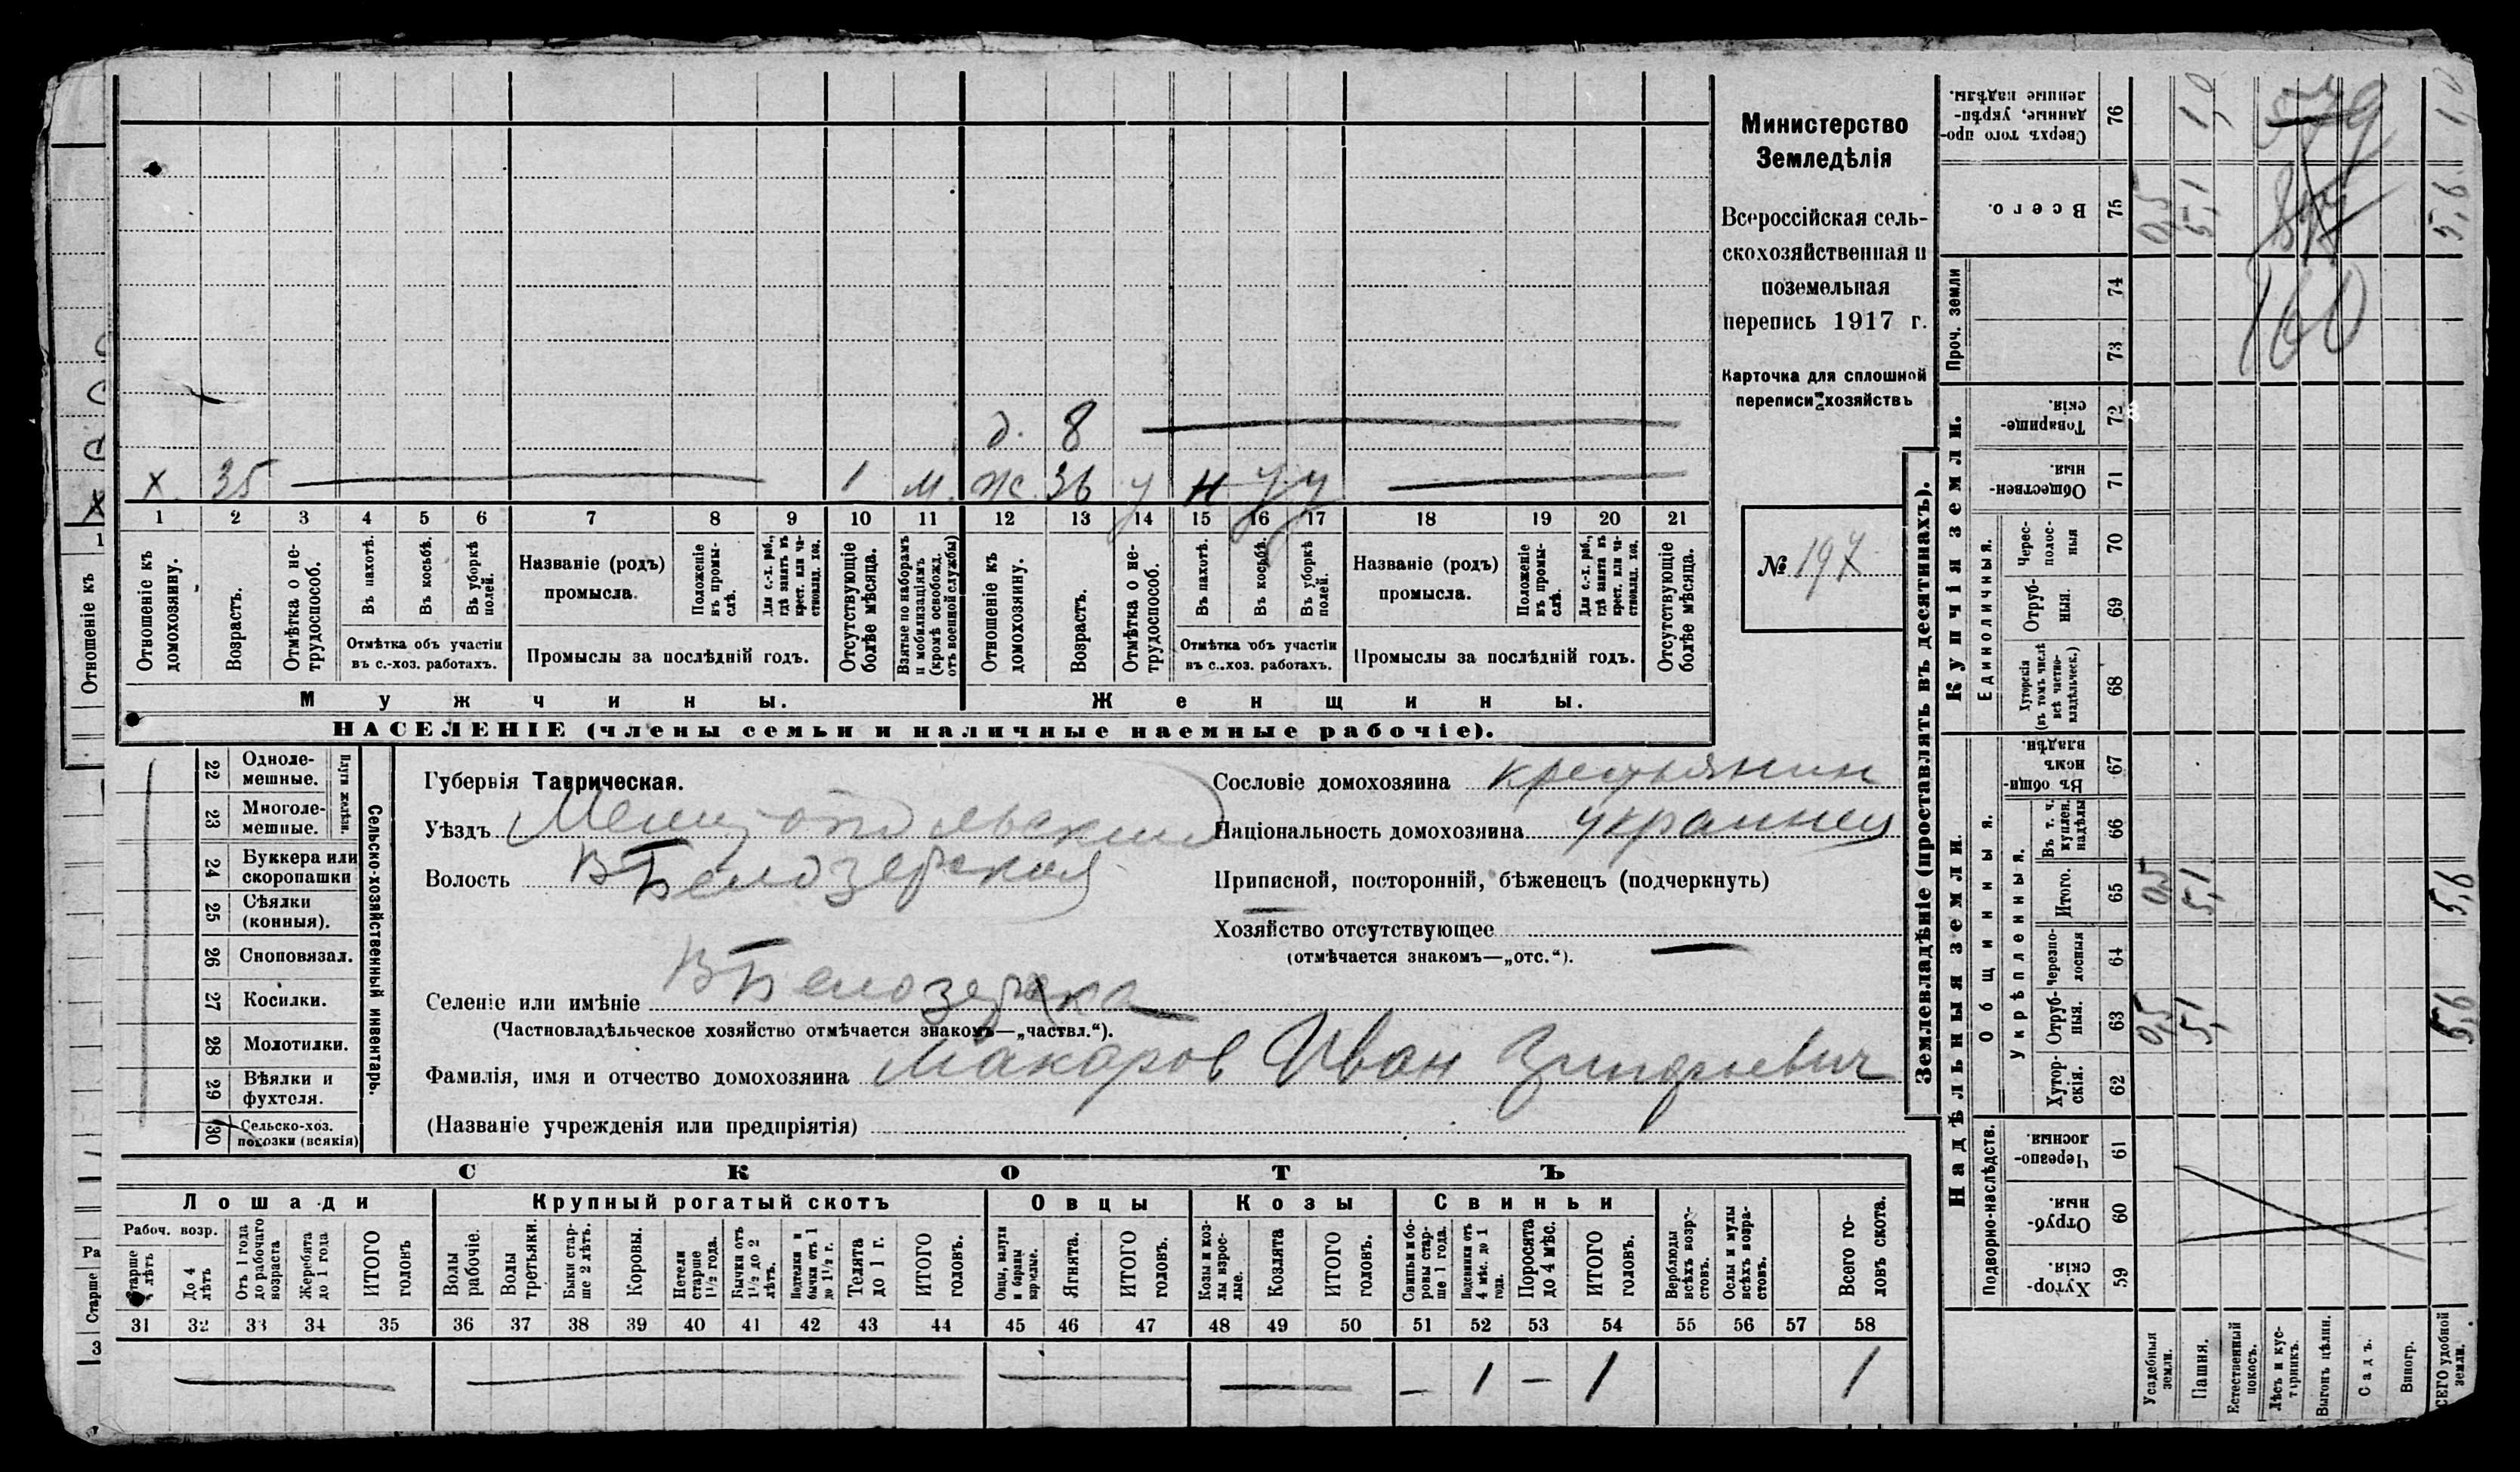 Министерство
Земледѣлія
Всероссійская сель-
скохозяйственная и
поземельная
перепись 1917 г.
Карточка для сплошной
переписи хозяйствъ
№ 197
д. 8
х. 35 1 м. ж. 36 у н у у
1 2 3 4 5 6 7 8 9 10 11 12 13 14 15 16 17 18 19 20 21
Отношеніе къ домохозяину.
Возрастъ.
Отмѣтка о не-трудоспособ.
Въ пахотѣ.
Въ косьбѣ.
Въ уборкѣ полей.
Отмѣтка объ участіи
въ с.-хоз. работахъ.
Названіе (родъ)
промысла.
Положеніе въ промы-слѣ.
Для с.-х. раб., гдѣ занятъ въ крест. или ча-стновлад. хоз.
Промыслы за послѣдній годъ.
Отсутствующіе болѣе мѣсяца.
Взятые по наборамъ и мобилизаціямъ (кромѣ освобожд. отъ военной службы)
Отношеніе къ домохозяину.
Возрастъ.
Отмѣтка о не-трудоспособ.
Въ пахотѣ.
Въ косьбѣ.
Въ уборкѣ полей.
Отмѣтка объ участіи
въ с.-хоз. работахъ.
Названіе (родъ)
промысла.
Положеніе въ промы-слѣ.
Для с.-х. раб., гдѣ занята въ крест. или ча-стновлад. хоз.
Промыслы за послѣдній годъ.
Отсутствующіе болѣе мѣсяца.
Мужчины.
Женщины.
НАСЕЛЕНІЕ (члены семьи и наличные наемные рабочіе).
Сельско-хозяйственный инвентарь.
Плуги желѣзн.
22 Одноле-мешные.
23 Многоле-мешные.
24 Буккера или скоропашки
25 Сѣялки (конныя).
26 Сноповязал.
27 Косилки.
28 Молотилки.
29 Вѣялки и фухтеля.
30 Сельско-хоз. повозки (всякія)
Губернія Таврическая.
Уѣздъ Мелитопольский
Волость В Белозерская
Селеніе или имѣніе В Белозерка
(Частновладѣльческое хозяйство отмѣчается знакомъ—„частвл.“).
Фамилія, имя и отчество домохозяина Макаров Иван Григорьевич
(Названіе учрежденія или предпріятія)
Сословіе домохозяина крестьянин
Національность домохозяина украинец
Приписной, посторонній, бѣженецъ (подчеркнуть)
Хозяйство отсутствующее
(отмѣчается знакомъ—„отс.“).
СКОТЪ
Лошади
Крупный рогатый скотъ
Овцы
Козы
Свиньи
Рабоч. возр.
Старше 4 лѣтъ
До 4 лѣтъ
Отъ 1 года до рабочаго возраста
Жеребята до 1 года
ИТОГО головъ
Волы рабочіе.
Волы третьяки.
Быки стар-ше 2 лѣтъ.
Коровы.
Нетели старше 1½ года.
Бычки отъ 1½ до 2 лѣтъ.
Подтелки и бычки отъ 1 до 1½ г.
Телята до 1 г.
ИТОГО головъ.
Овцы, валухи и бараны взрослые.
Ягнята.
ИТОГО головъ.
Козы и коз-лы взрос-лые.
Козлята
ИТОГО головъ.
Свиньи и бо-ровы стар-ше 1 года.
Подсвинки отъ 4 мѣс. до 1 года.
Поросята до 4 мѣс.
ИТОГО головъ.
Верблюды всѣхъ возра-стовъ.
Ослы и мулы всѣхъ возра-стовъ.
Всего го-ловъ скота.
31 32 33 34 35 36 37 38 39 40 41 42 43 44 45 46 47 48 49 50 51 52 53 54 55 56 57 58
— 1 — 1 1
Землевладѣніе (проставлять въ десятинахъ).
Надѣльныя земли.
Купчія земли.
Проч. земли
Подворно-наслѣдств.
Общинныя.
Укрѣпленныя.
Единоличныя.
Хутор-скія 59
Отруб-ныя. 60
Черезпо-лосныя. 61
Хутор-скія. 62
Отруб-ныя. 63
Черезпо-лосныя 64
Итого. 65
Въ т. ч. куплен. надѣлы 66
Въ общи-номъ владѣн. 67
Хуторскія (въ томъ числѣ всѣ частно-владѣльческ.) 68
Отруб-ныя. 69
Черес-полос-ныя 70
Обществен-ныя. 71
Товарище-скія. 72
73
74
Всего. 75
Сверхъ того про-данные, укрѣп-ленные надѣлы. 76
Усадебныя земли.
Пашня.
Естественный покосъ.
Лѣсъ и кус-тарникъ.
Выгонъ цѣлин.
Садъ.
Виногр.
ВСЕГО удобной земли.
0,5 5,1 5,6
0,5 5,1 5,6
0,5 5,1 5,6
1,0 1,0
579
160
Отношеніе къ
х
1
Ра
Старше
3